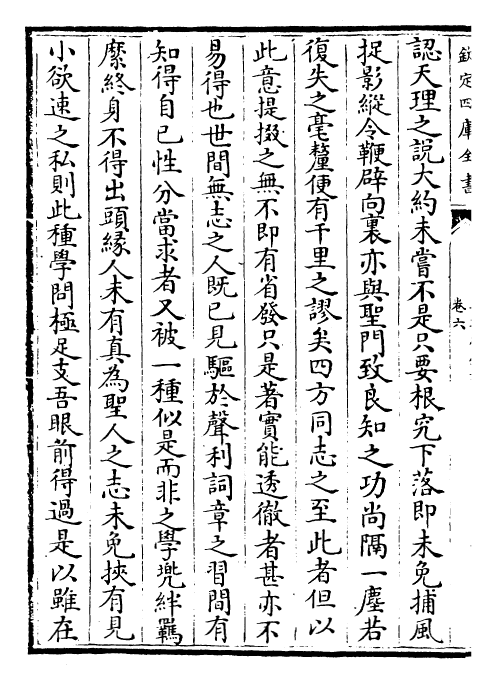 欽定四庫全書
卷六
認天理之說大約未嘗不是只要根究下落即未免捕風
捉影縱令鞭辟向裏亦與聖門致良知之功尚隔一塵若
復失之毫釐便有千里之謬矣四方同志之至此者但以
此意提掇之無不即有省發只是著實能透徹者甚亦不
易得也世間無志之人既已見驅於聲利詞章之習間有
知得自己性分當求者又被一種似是而非之學兠絆羈
縻終身不得出頭緣人未有真為聖人之志未免挾有見
小欲速之私則此種學問極足支吾眼前得過是以雖在